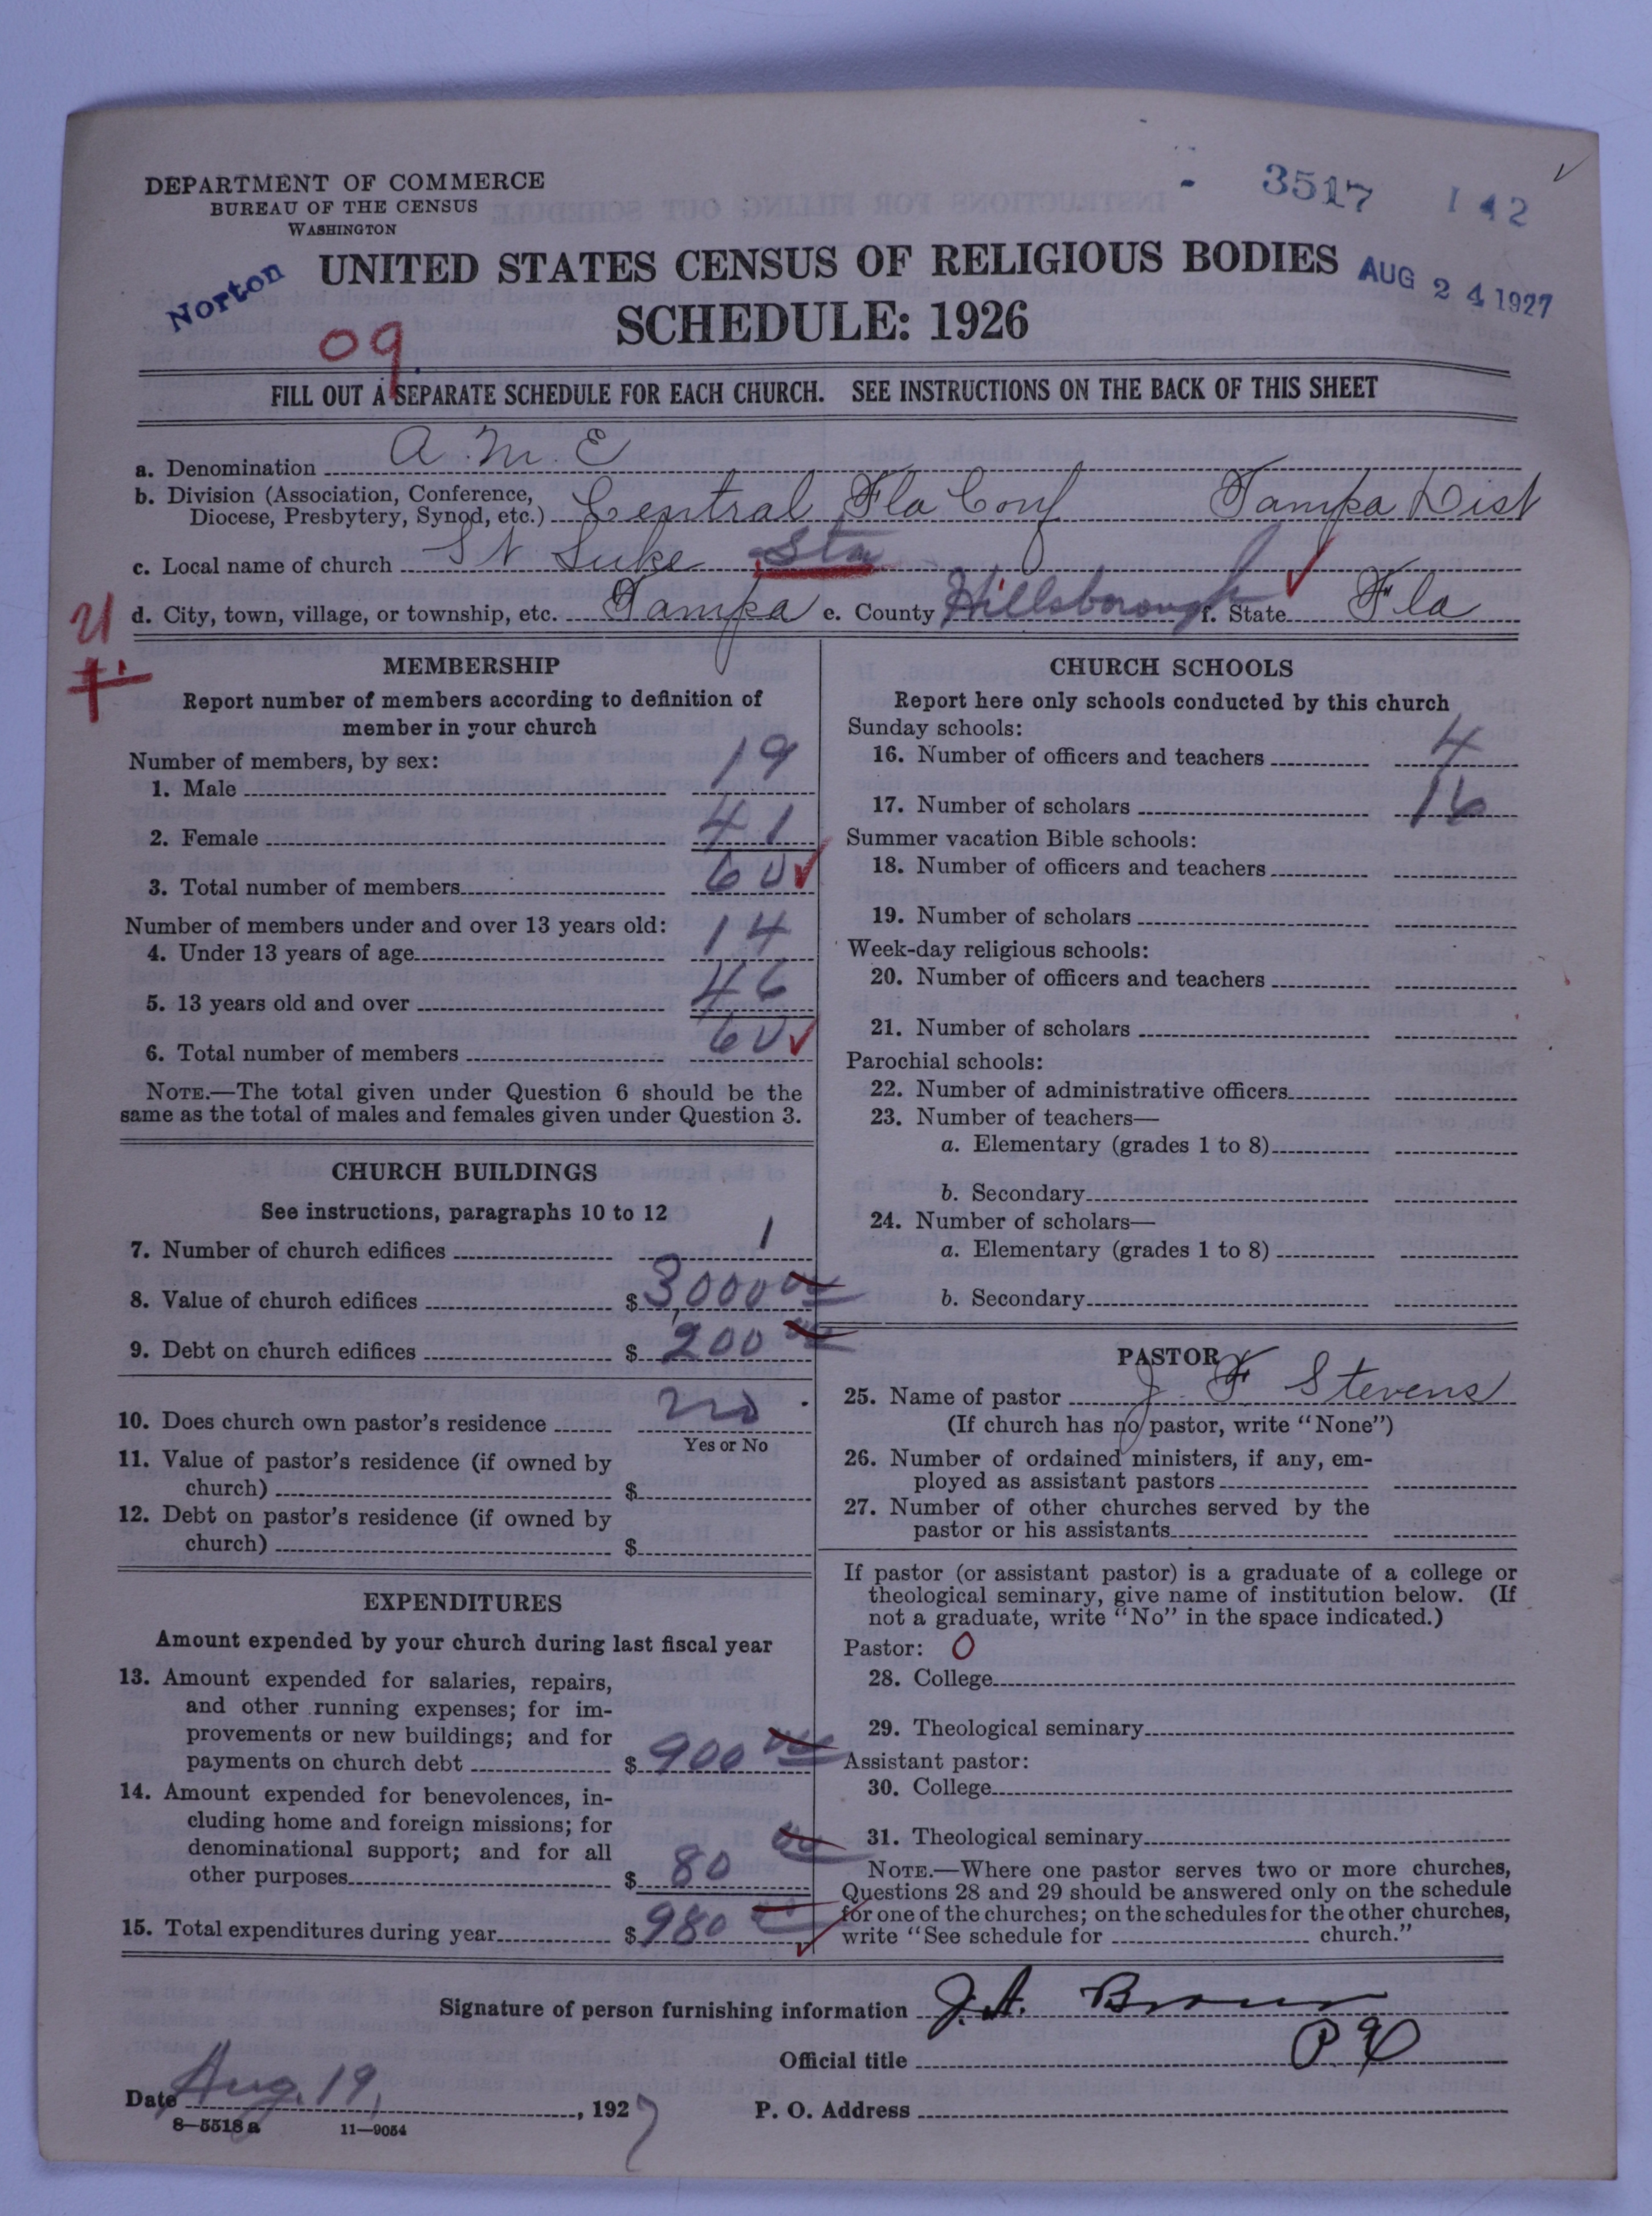 DEPARTMENT OF COMMERCE
BUREAU OF THE CENSUS
WASHINGTON
3517 142
Norton
UNITED STATES CENSUS OF RELIGIOUS BODIES
AUG 24 1927
SCHEDULE: 1926
09
FILL OUT A SEPARATE SCHEDULE FOR EACH CHURCH. SEE INSTRUCTIONS ON THE BACK OF THIS SHEET
a. Denomination A. M. E
b. Division (Association, Conference,
Diocese, Presbytery, Synod, etc.) Central Fla Conf Tampa Dist
c. Local name of church St Luke Sta
d. City, town, village, or township, etc. Tampa e. County Hillsborough f. State Fla
MEMBERSHIP
Report number of members according to definition of
member in your church
Number of members, by sex:
1. Male 19
2. Female 41
3. Total number of members 60
Number of members under and over 13 years old:
4. Under 13 years of age 14
5. 13 years old and over 46
6. Total number of members 60
NOTE.—The total given under Question 6 should be the
same as the total of males and females given under Question 3.
CHURCH BUILDINGS
See instructions, paragraphs 10 to 12
7. Number of church edifices 1
8. Value of church edifices $3000 00
9. Debt on church edifices $200 00
10. Does church own pastor's residence no
Yes or No
11. Value of pastor's residence (if owned by
church) $
12. Debt on pastor's residence (if owned by
church) $
EXPENDITURES
Amount expended by your church during last fiscal year
13. Amount expended for salaries, repairs,
and other running expenses; for im-
provements or new buildings; and for
payments on church debt $900 00
14. Amount expended for benevolences, in-
cluding home and foreign missions; for
denominational support; and for all
other purposes $80 00
15. Total expenditures during year $980
CHURCH SCHOOLS
Report here only schools conducted by this church
Sunday schools:
16. Number of officers and teachers 4
17. Number of scholars 16
Summer vacation Bible schools:
18. Number of officers and teachers
19. Number of scholars
Week-day religious schools:
20. Number of officers and teachers
21. Number of scholars
Parochial schools:
22. Number of administrative officers
23. Number of teachers—
a. Elementary (grades 1 to 8)
b. Secondary
24. Number of scholars—
a. Elementary (grades 1 to 8)
b. Secondary
PASTOR
25. Name of pastor J. F Stevens
(If church has no pastor, write "None")
26. Number of ordained ministers, if any, em-
ployed as assistant pastors
27. Number of other churches served by the
pastor or his assistants
If pastor (or assistant pastor) is a graduate of a college or
theological seminary, give name of institution below. (If
not a graduate, write "No" in the space indicated.)
Pastor: 0
28. College
29. Theological seminary
Assistant pastor:
30. College
31. Theological seminary
NOTE.—Where one pastor serves two or more churches,
Questions 28 and 29 should be answered only on the schedule
for one of the churches; on the schedules for the other churches,
write "See schedule for church."
Signature of person furnishing information J. A. Brown
Official title P. E
Date Aug. 19, 1927
P. O. Address
8—5518 a 11—9054